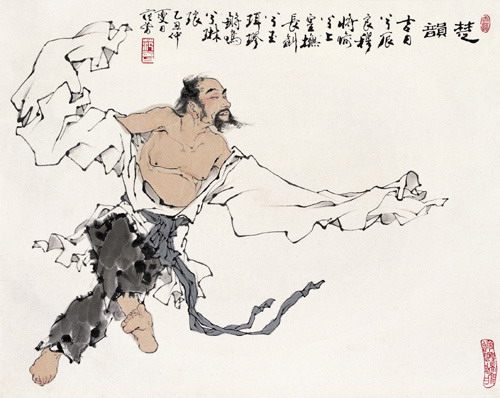 楚韻
吉日
兮辰
良穆
將愉
兮上
皇撫
長劍
兮玉
珥璆
鏘鳴
兮琳
琅
乙丑仲
夏日
范曾